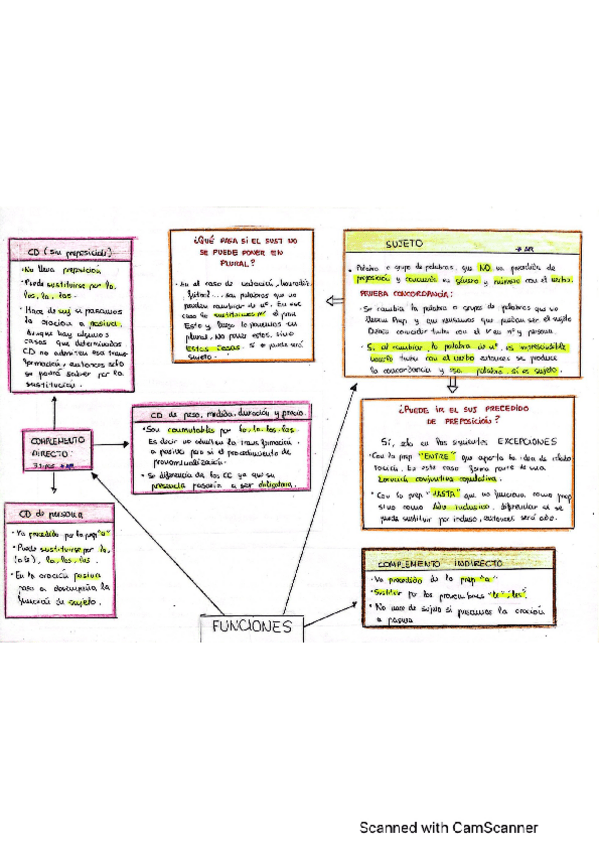 CD (sin preposición)
· No lleva preposición
· Puede sustituirse por lo,
los, la, las.
· Hace de suj si pasamos
la oración a pasiva.
Aunque hay algunos
casos que determinados
CD no admiten esa trans
formación, entonces sólo
se podrá saber por la
sustitución.
¿QUÉ PASA SI EL SUST NO
SE PUEDE PONER EN
PLURAL?
· En el caso de
son palabras que no
pueden cambiar de nº. En ese
caso lo sustituimos por el pron
Esto y luego lo ponemos en
plural, No pone estos, sino
estas cosas. Si puede será
sujeto.
SUJETO
· Palabra o grupo de palabras, que NO va precedida de
preposición y concuerda en género y número con el verbo.
PRUEBA CONCORDANCIA:
· Se cambia la palabra o grupos de palabras que no
lleven Prep y que pensamos que puedan ser el sujeto
Deben concordar tanto con el V en nº y persona.
· Si al cambiar la palabra de nº, es imprescindible
tanto con el verbo entonces se produce
la concordancia y esa palabra, sí es sujeto.
COMPLEMENTO
DIRECTO:
CD de peso, medida, duración y precio
· Son conmutables por lo, la, los, las
Es decir no admiten la transformación
a pasiva pero sí el procedimiento de
pronominalización.
· Se diferencia de los CC ya que su
presencia pasaría a ser obligatoria.
¿PUEDE IR EL SUS PRECEDIDO
DE PREPOSICIÓN?
Sí, sólo en las siguientes EXCEPCIONES
· Con la prep "ENTRE" que aporta la idea de
En este caso forma parte de una
locución conjuntiva copulativa.
· Con la prep "HASTA" que no funciona como prep
sino como Adv inclusivo,
puede sustituir por incluso, entonces será adv.
CD de persona
· Va precedido por la prep "a"
· Puede sustituirse por lo,
(a él), la, los, las.
· En la oración pasiva
pasa a desempeñar la
función de sujeto.
COMPLEMENTO INDIRECTO
· Va precedido de la prep "a"
· Sustituir por los pronombres "le", "les"
· No hace de sujeto si pasamos la oración
a pasiva
FUNCIONES
Scanned with CamScanner